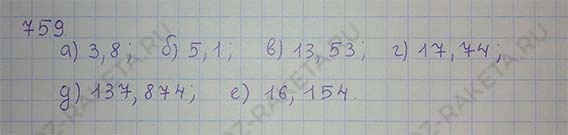 759
а) 3,8; б) 5,1; в) 13,53; г) 17,74;
д) 137,874; е) 16,154.